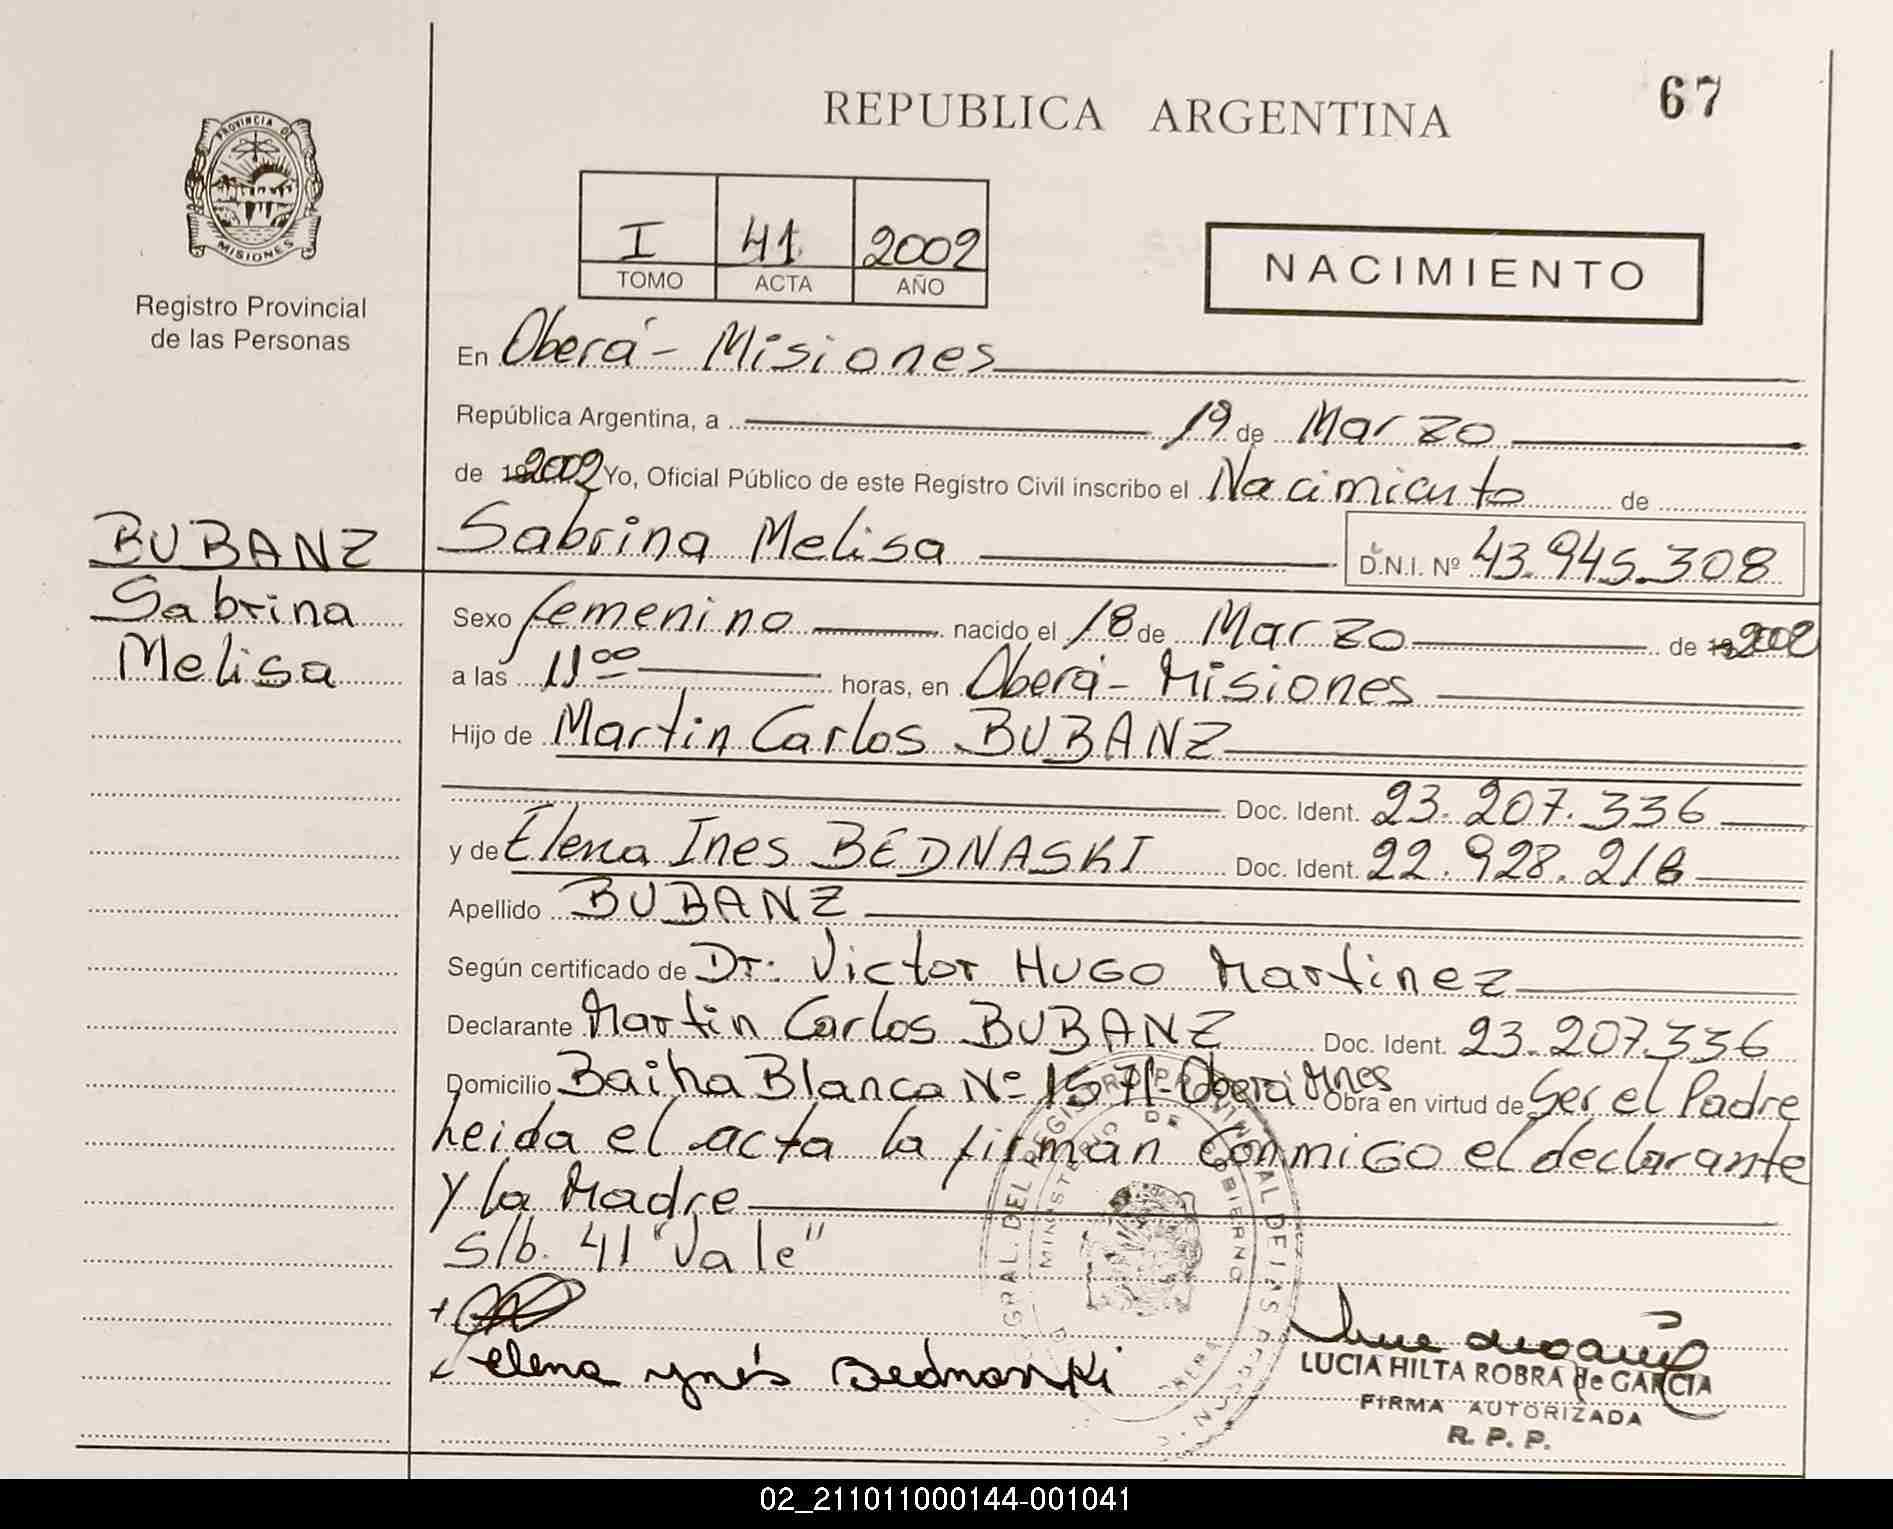 67
REPUBLICA ARGENTINA
PROVINCIA DE
MISIONES
Registro Provincial
de las Personas
I 41 2002
TOMO ACTA AÑO
NACIMIENTO
En Oberá - Misiones
República Argentina, a 19 de Marzo
de 2002 Yo, Oficial Público de este Registro Civil inscribo el Nacimiento de
BUBANZ
Sabrina
Melisa
Sabrina Melisa D.N.I. Nº 43.945.308
Sexo femenino nacido el 18 de Marzo de 2002
a las 11 00 horas, en Oberá - Misiones
Hijo de Martin Carlos BUBANZ
Doc. Ident. 23.207.336
y de Elena Ines BEDNASKI Doc. Ident. 22.928.216
Apellido BUBANZ
Según certificado de Dr: Victor HUGO Martinez
Declarante Martin Carlos BUBANZ Doc. Ident. 23.207.336
Domicilio Baiha Blanca Nº 1571 - Oberá Mnes Obra en virtud de Ser el Padre
Leida el acta la firman conmigo el declarante
y la Madre
S/b. 41 "Vale"
Elena Ynés Bednarski
GRAL. DEL REGISTRO PROVINCIAL DE LAS PERSON
MINISTERIO DE GOBIERNO
OBERA
LUCIA HILTA ROBRA de GARCIA
FIRMA AUTORIZADA
R. P. P.
02_211011000144-001041